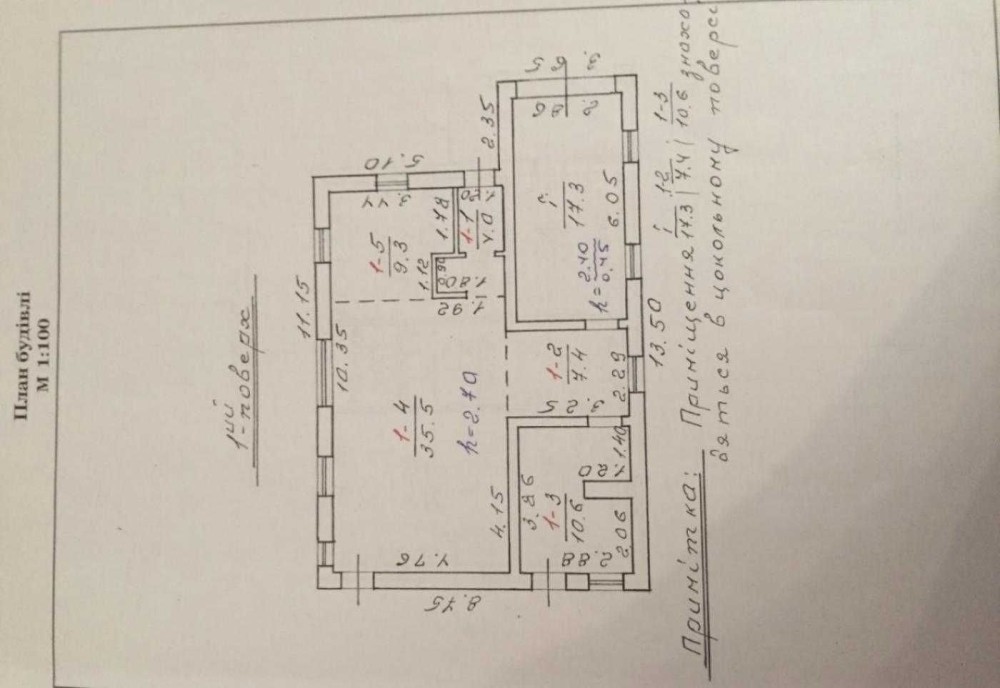 План будівлі
М 1:100
1ий-поверх
11.15
10.35
5.10
3.44
1-5
9.3
1.78
1.12
0.90
1.80
1.92
1.50
1-1
4.0
2.35
1-4
35.5
h=2.70
4.76
8.75
4.15
1-2
7.4
3.25
2.29
3.86
1-3
10.6
2.88
2.06
1.20
1.40
I
17.3
6.05
h= 2.40
0.45
13.50
Примітка: Приміщення I 17.3 | 1-2 7.4 | 1-3 10.6 знахо-
дяться в цокольному поверсі